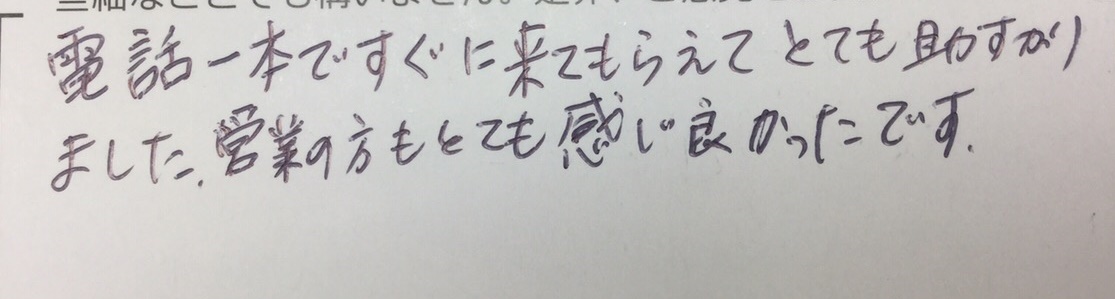 電話一本ですぐに来てもらえてとても助すかり
ました.営業の方もとても感じ良かったです.